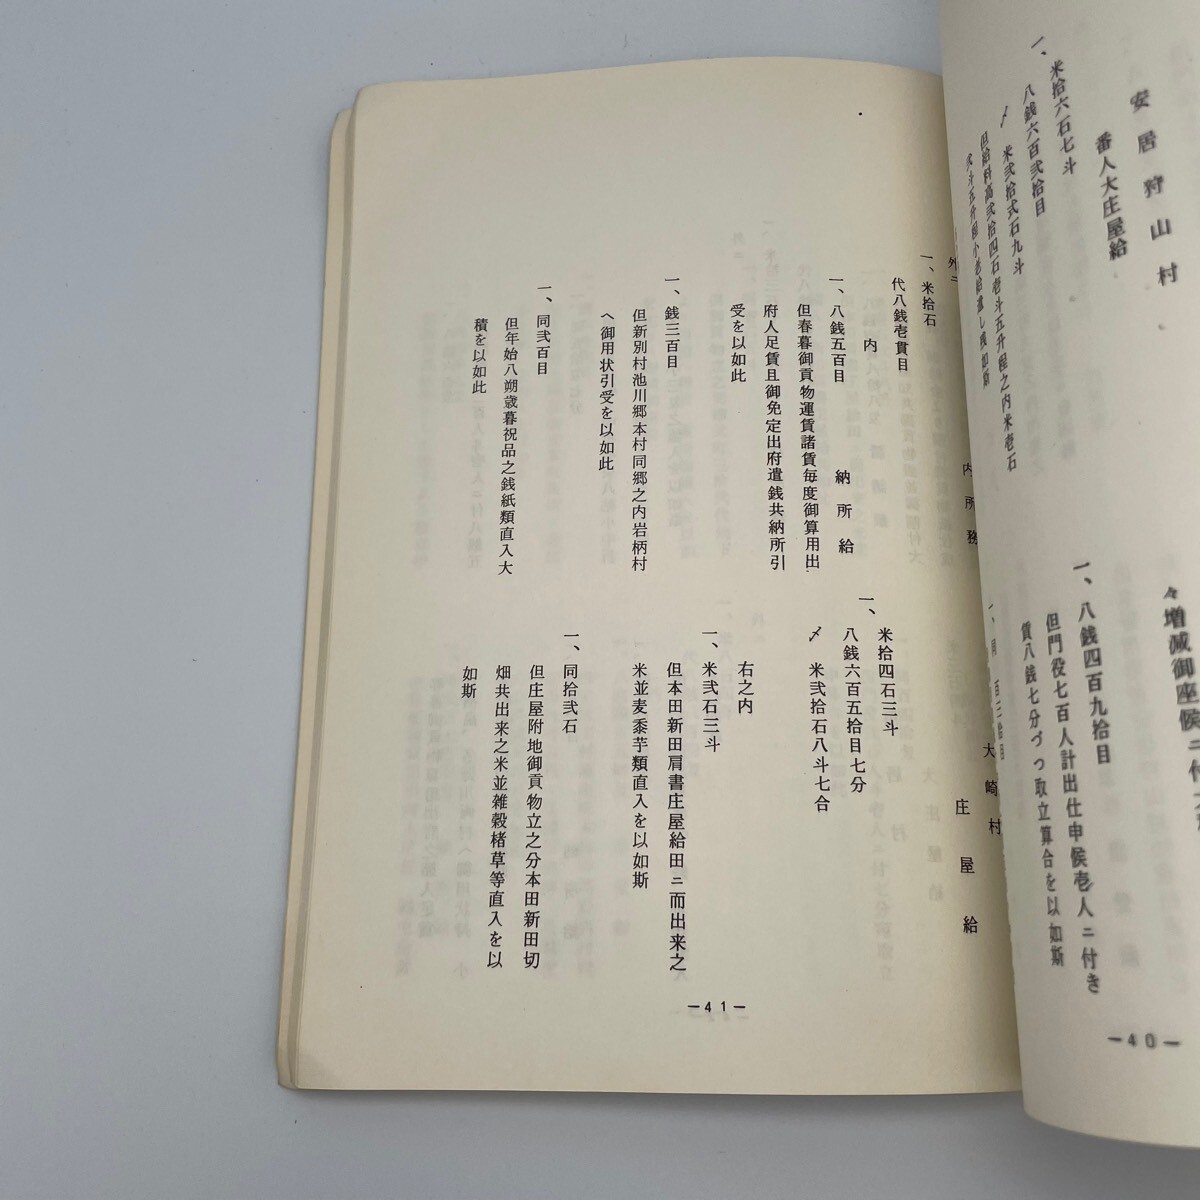 安居狩山村
番人大庄屋給
一、米拾六石七斗
八銭六百弐拾目
〆　米弐拾弐石九斗
但給料高弐拾四石壱斗五升程之内米壱石
弐斗五升程小老給遣し残如斯
々増減御座候ニ付
一、八銭四百九拾目
但門役七百人計出仕申候壱人ニ付き
賃八銭七分づつ取立算合を以如斯
―40―
外ニ
内所務
一、米拾石
代八銭壱貫目
内
納所給
一、八銭五百目
但春暮御貢物運賃諸賃毎度御算用出
府人足賃且御免定出府遣銭共納所引
受を以如此
一、銭三百目
但新別村池川郷本村同郷之内岩柄村
へ御用状引受を以如此
一、同弐百目
但年始八朔歳暮祝品之銭紙類直入大
積を以如此
大崎村
庄屋給
一、米拾四石三斗
八銭六百五拾目七分
〆　米弐拾石八斗七合
右之内
一、米弐石三斗
但本田新田肩書庄屋給田ニ而出来之
米並麦黍芋類直入を以如斯
一、同拾弐石
但庄屋附地御貢物立之分本田新田切
畑共出来之米並雑穀楮草等直入を以
如斯
―41―